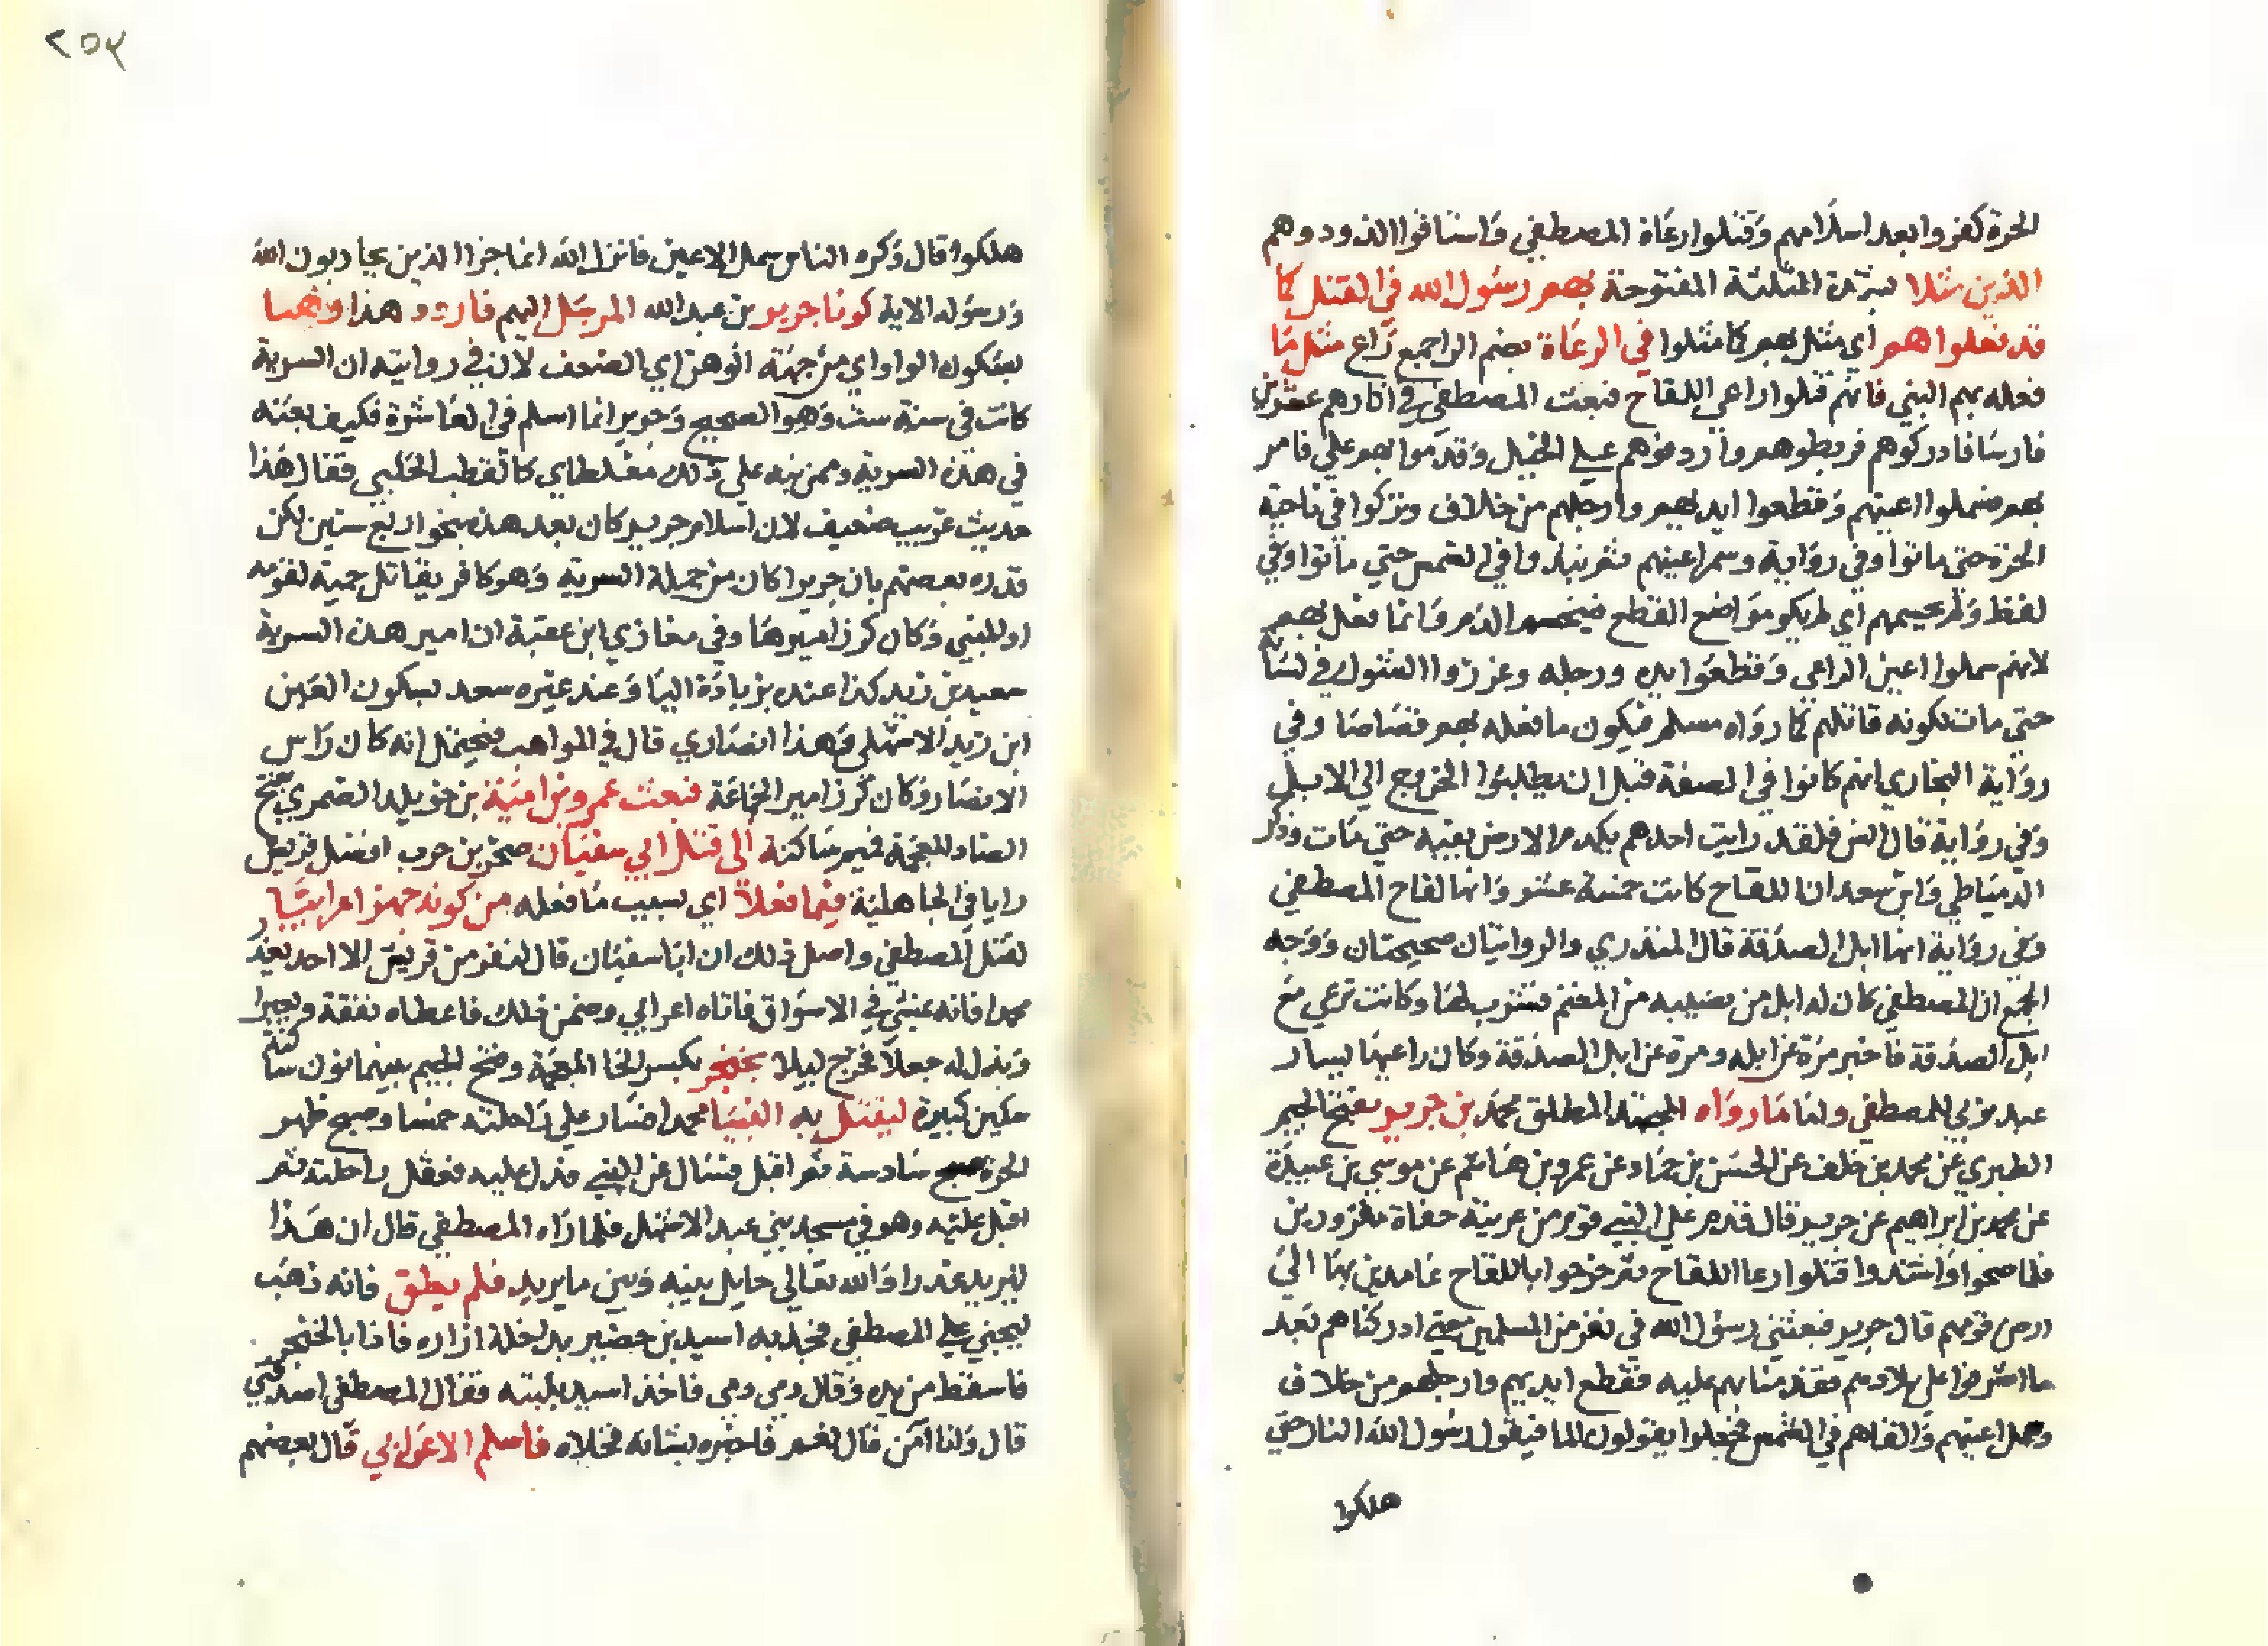 الحرة كفروا بعد اسلامهم وقتلوا رعاة المصطفي واستاقوا الذود وهم
الذين مثلا المثلثة المفتوحة بهم رسول الله في القتل كما
قد فعلوا هم اي مثل بهم كما مثلوا في الرعاة بضم الراجمع راع مثل ما
فعله بهم النبي فانهم قتلوا راعي اللقاح فبعث المصطفي في اثارهم عشرين
فارسا فادركوهم فربطوهم واردفوهم علي الخيل وقدموا بهم علي فامر
بهم فسملوا اعينهم وقطعوا ايديهم وارجلهم من خلاف وتركوا في ناحية
الحرة حتي ماتوا وفي رواية وسمر اعينهم ثم نبذوا في الشمس حتي ماتوا وفي
لفظ ولم يحسمهم اي لم يكو مواضع القطع فينحسم الدم وانما فعل بهم
لانهم سملوا اعين الراعي وقطعوا يده ورجله وغرزوا الشوك في لسانه
حتي مات لكونه قاتلهم كما رواه مسلم فيكون ما فعله بهم قصاصا وفي
رواية البخاري انهم كانوا في الصفة قبل ان يطلبوا الخروج الي الابل
وفي رواية قال انس فلقد رايت احدهم يكدم الارض بفيه حتي مات وذكر
الدمياطي وابن سعد ان اللقاح كانت خمسة عشر وانها لقاح المصطفي
وفي رواية انها ابل الصدقة قال المنذري والروايتان صحيحتان ووجه
الجمع ان المصطفي كان له ابل من نصيبه من المغنم فشرب لبنها وكانت ترعي مع
ابل الصدقة فاخبر مرة عن ابله ومرة عن ابل الصدقة وكان راعيها يسار
عبد نوبي للمصطفي ولنا ما رواه المجتهد المطلق محمد بن جرير بفتح الجيم
الطبري عن محمد بن خلف عن الحسن بن حماد عن عمرو بن هاشم عن موسي بن عبيدة
عن محمد بن ابراهيم عن جرير قال قدم علي النبي قوم من عرينة حفاة مضرورين
فلما صحوا واشتدوا قتلوا رعا اللقاح ثم خرجوا باللقاح عامدين بها الي
ارض قومهم قال جرير فبعثني رسول الله في نفر من المسلمين حتي ادركناهم بعد
ما اشرفوا علي بلادهم فقدمنا بهم عليه فقطع ايديهم وارجلهم من خلاف
وسمل اعينهم والقاهم في الشمس فجعلوا يقولون الما فيقول رسول الله النار حتي
هلكوا
٢٥٢
هلكوا قال وكره الناس سمل الاعين فانزل الله انما جزا الذين يحاربون الله
ورسوله الاية كون جرير بن عبد الله المرسل اليهم فاردد هذا وهنا
بسكون الواو اي من جهة الوهن اي الضعف لان في روايته ان السرية
كانت في سنة ست وهو الصحيح وجرير انما اسلم في العاشرة فكيف بعثه
في هذه السرية وممن نبه علي ذلك مغلطاي كالقطب الحلبي فقال هذا
حديث غريب ضعيف لان اسلام جرير كان بعد هذه بنحو اربع سنين لكن
قد رده بعضهم بان جريرا كان من جملة السرية وهو كافر يقاتل حمية لقومه
او للنبي وكان كرز اميرها وفي مغازي ابن عقبة ان امير هذه السرية
سعيد بن زيد كذا عنده بزيادة اليا وعند غيره سعد بسكون العين
ابن زيد الاشهلي وهذا انصاري قال في المواهب فيحتمل انه كان راس
الانصار وكان كرز امير الجماعة فبعث عمرو بن امية بن خويلد الضمري بفتح
الضاد المعجمة فميم ساكنة الي قتل ابي سفيان صخر بن حرب افضل قريش
رايا في الجاهلية فيما فعلا اي بسبب ما فعله من كونه جهز اعرابيا
لقتل المصطفي واصل ذلك ان ابا سفيان قال لنفر من قريش الا احد يغتر
محمدا فانه يمشي في الاسواق فاتاه اعرابي وضمن ذلك فاعطاه نفقة وبعيرا
وبذل له جعلا فخرج ليلا بخنجر بكسر الخا المعجمة وفتح الجيم بينهما نون ساكنة
سكين كبيرة ليقتل به النبيا محمدا فسار علي راحلته خمسا وصبح ظهر
الحرة صبح سادسة ثم اقبل فسال عن النبي فدل عليه فعقل راحلته ثم
اقبل عليه وهو في مسجد بني عبد الاشهل فلما راه المصطفي قال ان هذا
ليريد غدرا والله تعالي حايل بينه وبين ما يريد فلم يطق فانه ذهب
ليجني علي المصطفي فجذبه اسيد بن حضير بداخلة ازاره فاذا بالخنجر
فاسقط من يده وقال دمي دمي فاخذ اسيد بلبته فقال المصطفي اصدقني
قال وانا آمن قال نعم فاخبره بشانه فخلاه فاسلم الاعرابي قال بعضهم